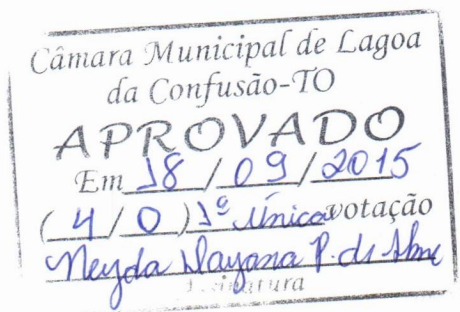 Câmara Municipal de Lagoa
da Confusão-TO
APROVADO
Em 18 / 09 / 2015
( 4 / 0 ) 1º Única votação
Neyda Dayana P. da
Assinatura